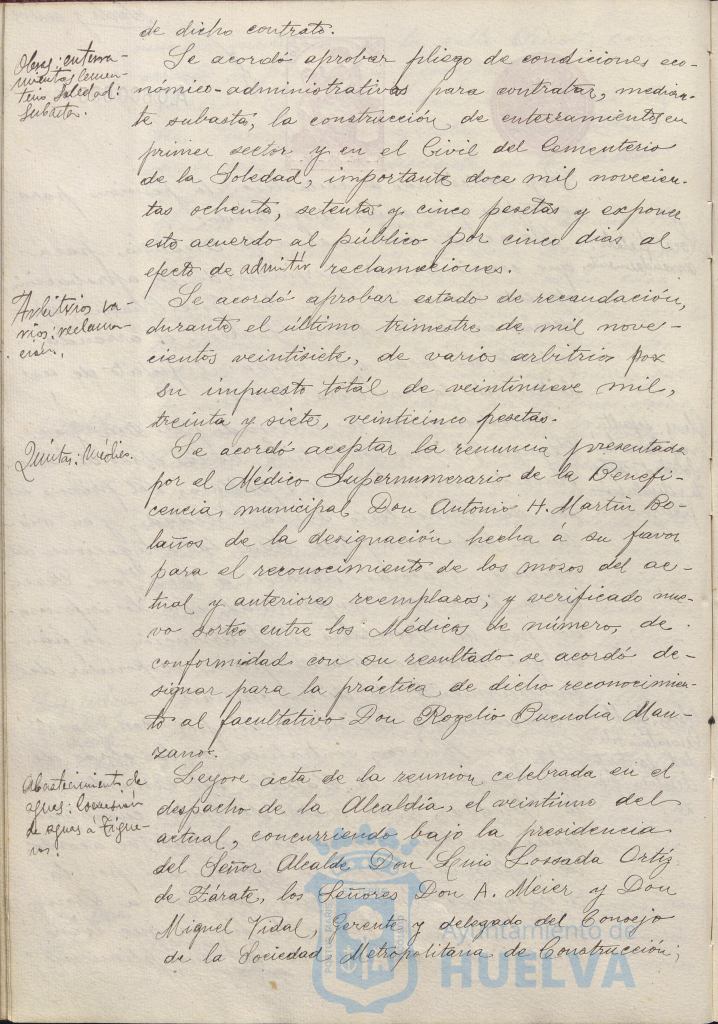 de dicho contrato.
Obras: enterra-
mientos Cemen-
terio Soledad:
Subasta.
Se acordó aprobar pliego de condiciones eco-
nómico-administrativas para contratar, median-
te subasta, la construcción de enterramientos en
primer sector y en el Civil del Cementerio
de la Soledad, importante doce mil novecien-
tas ochenta, setenta y cinco pesetas y exponer
este acuerdo al público por cinco dias al
efecto de admitir reclamaciones.
Arbitrios va-
rios:
Se acordó aprobar estado de recaudación,
durante el último trimestre de mil nove-
cientos veintisiete, de varios arbitrios por
su impuesto totál de veintinueve mil,
treinta y siete, veinticinco pesetas.
Quintas: Médico.
Se acordó aceptar la renuncia presentada
por el Médico Supernumerario de la Benefi-
cencia municipal Don Antonio H. Martín Bo-
laños de la designación hecha á su favor
para el reconocimiento de los mozos del ac-
tual y anteriores reemplazos; y verificado nue-
vo sorteo entre los Médicos de número, de
conformidad con su resultado se acordó de-
signar para la práctica de dicho reconocimien-
to al facultativo Don Rogelio Buendia Man-
zano.
Abastecimiento de
aguas:
de aguas á
Leyose acta de la reunion celebrada en el
despacho de la Alcaldía, el veintiuno del
actual, concurriendo bajo la presidencia
del Señor Alcalde Don Luis Lossada Ortíz
de Zárate, los Señores Don A. Méier y Don
Miguel Vidal, Gerente y delegado del Consejo
de la Sociedad Metropolitana de Construcción;
Ayuntamiento de
HUELVA